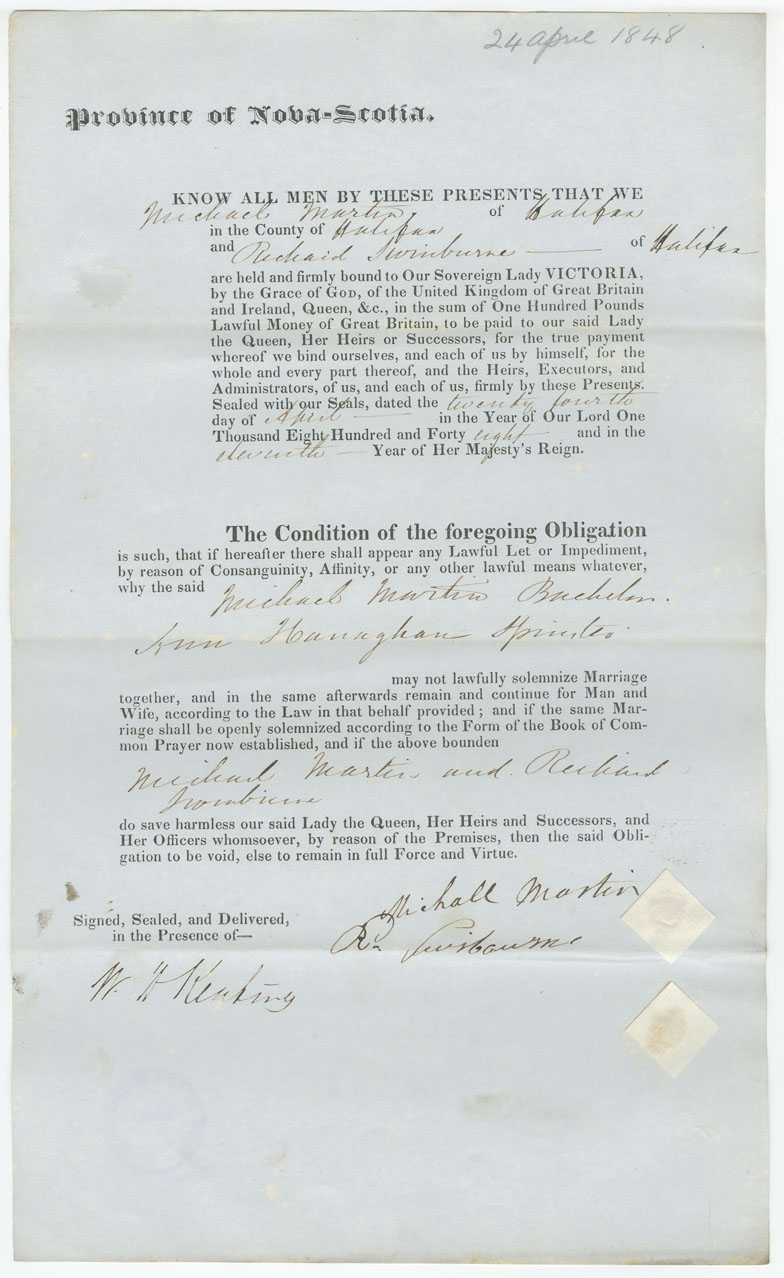 24 april 1848
Province of Nova-Scotia.
KNOW ALL MEN BY THESE PRESENTS THAT WE
Michael Martin of Halifax
in the County of Halifax
and Richard Swinburne of Halifax
are held and firmly bound to Our Sovereign Lady VICTORIA,
by the Grace of GOD, of the United Kingdom of Great Britain
and Ireland, Queen, &c., in the sum of One Hundred Pounds
Lawful Money of Great Britain, to be paid to our said Lady
the Queen, Her Heirs or Successors, for the true payment
whereof we bind ourselves, and each of us by himself, for the
whole and every part thereof, and the Heirs, Executors, and
Administrators, of us, and each of us, firmly by these Presents.
Sealed with our Seals, dated the twenty fourth
day of April — in the Year of Our Lord One
Thousand Eight Hundred and Forty eight and in the
eleventh — Year of Her Majesty's Reign.
The Condition of the foregoing Obligation
is such, that if hereafter there shall appear any Lawful Let or Impediment,
by reason of Consanguinity, Affinity, or any other lawful means whatever,
why the said Michael Martin Bachelor.
Ann Hanaghan Spinster
may not lawfully solemnize Marriage
together, and in the same afterwards remain and continue for Man and
Wife, according to the Law in that behalf provided; and if the same Mar-
riage shall be openly solemnized according to the Form of the Book of Com-
mon Prayer now established, and if the above bounden
Michael Martin and Richard
Swinburne
do save harmless our said Lady the Queen, Her Heirs and Successors, and
Her Officers whomsoever, by reason of the Premises, then the said Obli-
gation to be void, else to remain in full Force and Virtue.
Michall Martin
Signed, Sealed, and Delivered,
in the Presence of—
W. H Keating